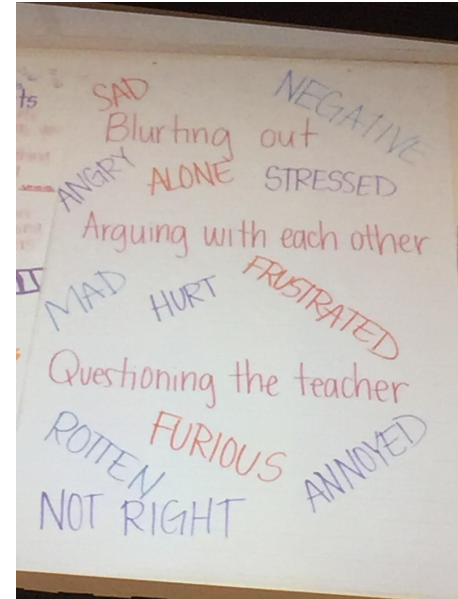 SAD
NEGATIVE
Blurting out
ANGRY ALONE STRESSED
Arguing with each other
MAD HURT FRUSTRATED
Questioning the teacher
ROTTEN FURIOUS ANNOYED
NOT RIGHT